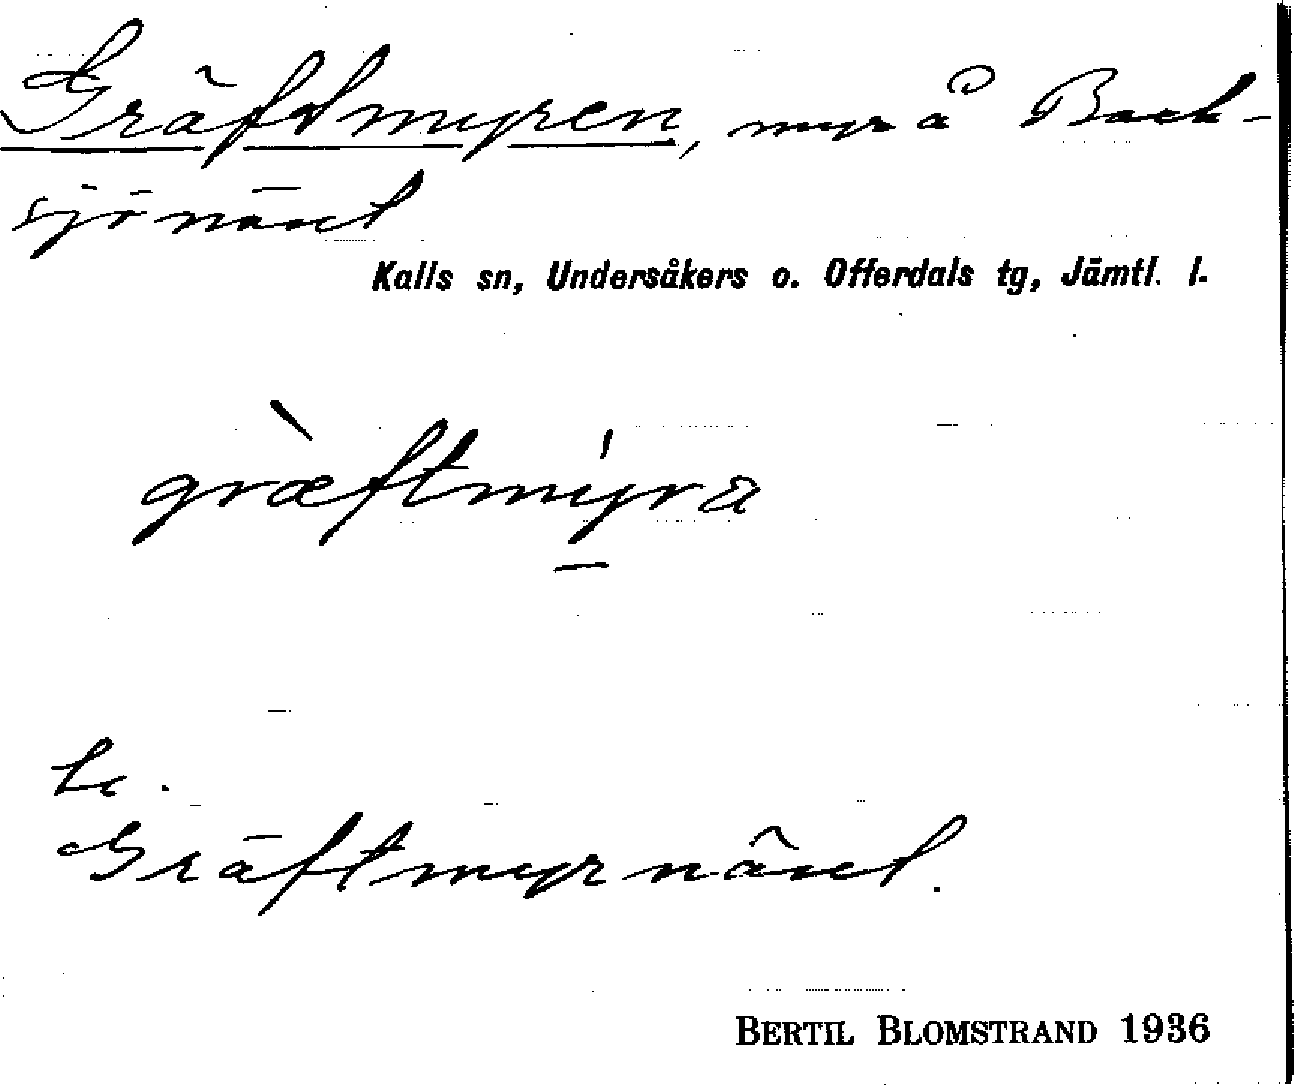 Gräftmyren, myr å Back-
sjönäset
Kalls sn, Undersåkers o. Offerdals tg, Jämtl. l.
græ̀ftmýra
be.
Gräftmyrnäset.
BERTIL BLOMSTRAND 1936